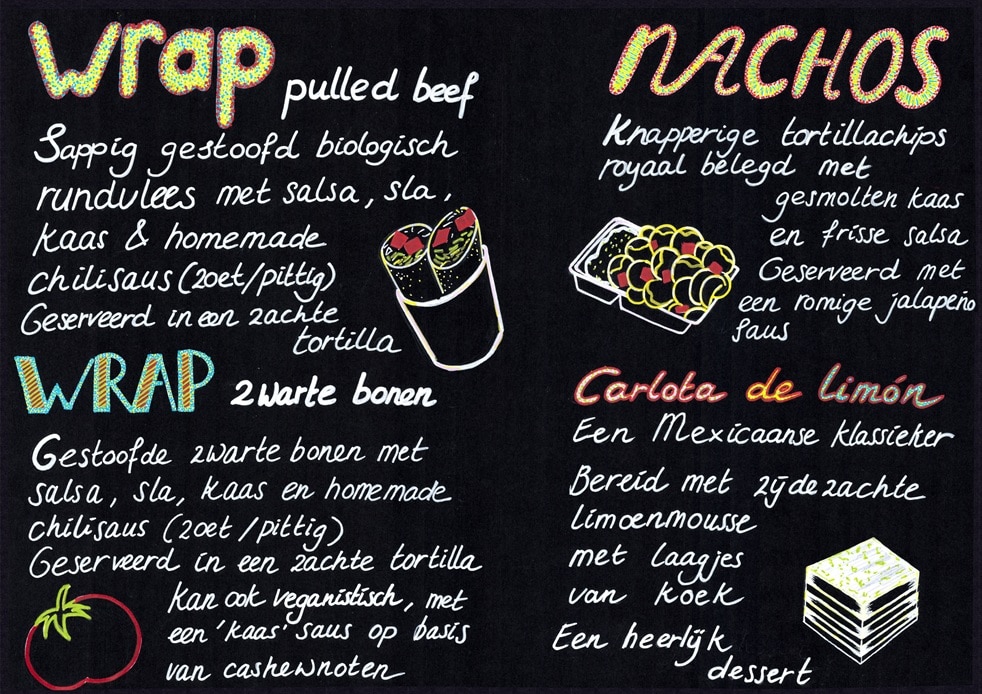 wrap pulled beef
Sappig gestoofd biologisch
rundvlees met salsa, sla,
kaas & homemade
chilisaus (zoet/pittig)
Geserveerd in een zachte
tortilla
WRAP zwarte bonen
Gestoofde zwarte bonen met
salsa, sla, kaas en homemade
chilisaus (zoet/pittig)
Geserveerd in een zachte tortilla
kan ook veganistisch, met
een 'kaas' saus op basis
van cashewnoten
NACHOS
Knapperige tortillachips
royaal belegd met
gesmolten kaas
en frisse salsa
Geserveerd met
een romige jalapeño
saus
Carlota de limón
Een Mexicaanse klassieker
Bereid met zijdezachte
limoenmousse
met laagjes
van koek
Een heerlijk
dessert